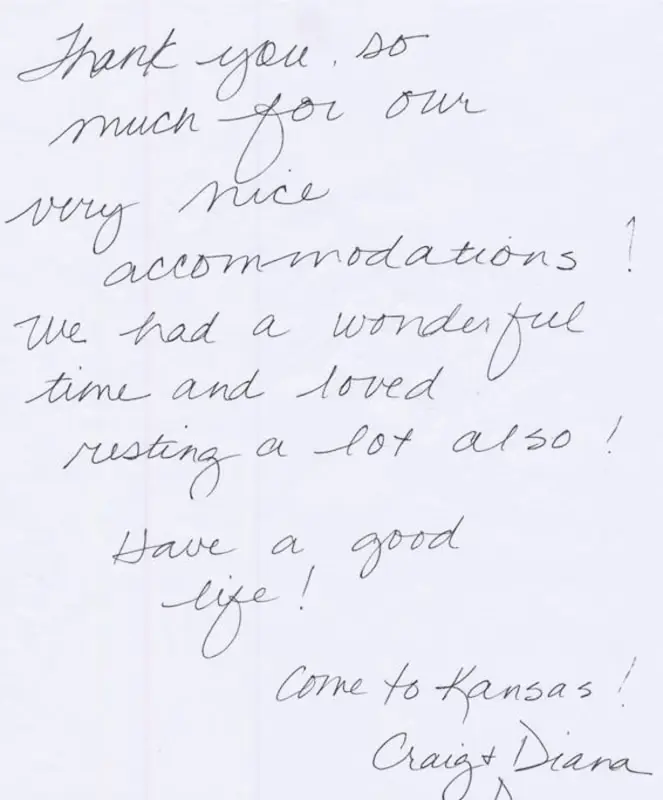 Thank you so
much for our
very nice
accommodations!
We had a wonderful
time and loved
resting a lot also!
Have a good
life!
Come to Kansas!
Craig + Diana